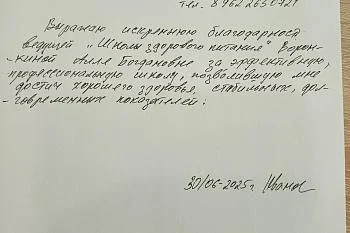 тел. 8 962 2650721
Выражаю искреннюю благодарност
ведущей "Школы здорового питания" Ворон-
киной Алле Богдановне за эффективную,
профессиональную школу, позволившую мне
достич хорошего здоровья, стабильных, дол-
говременных показателей.
30/06-2025г